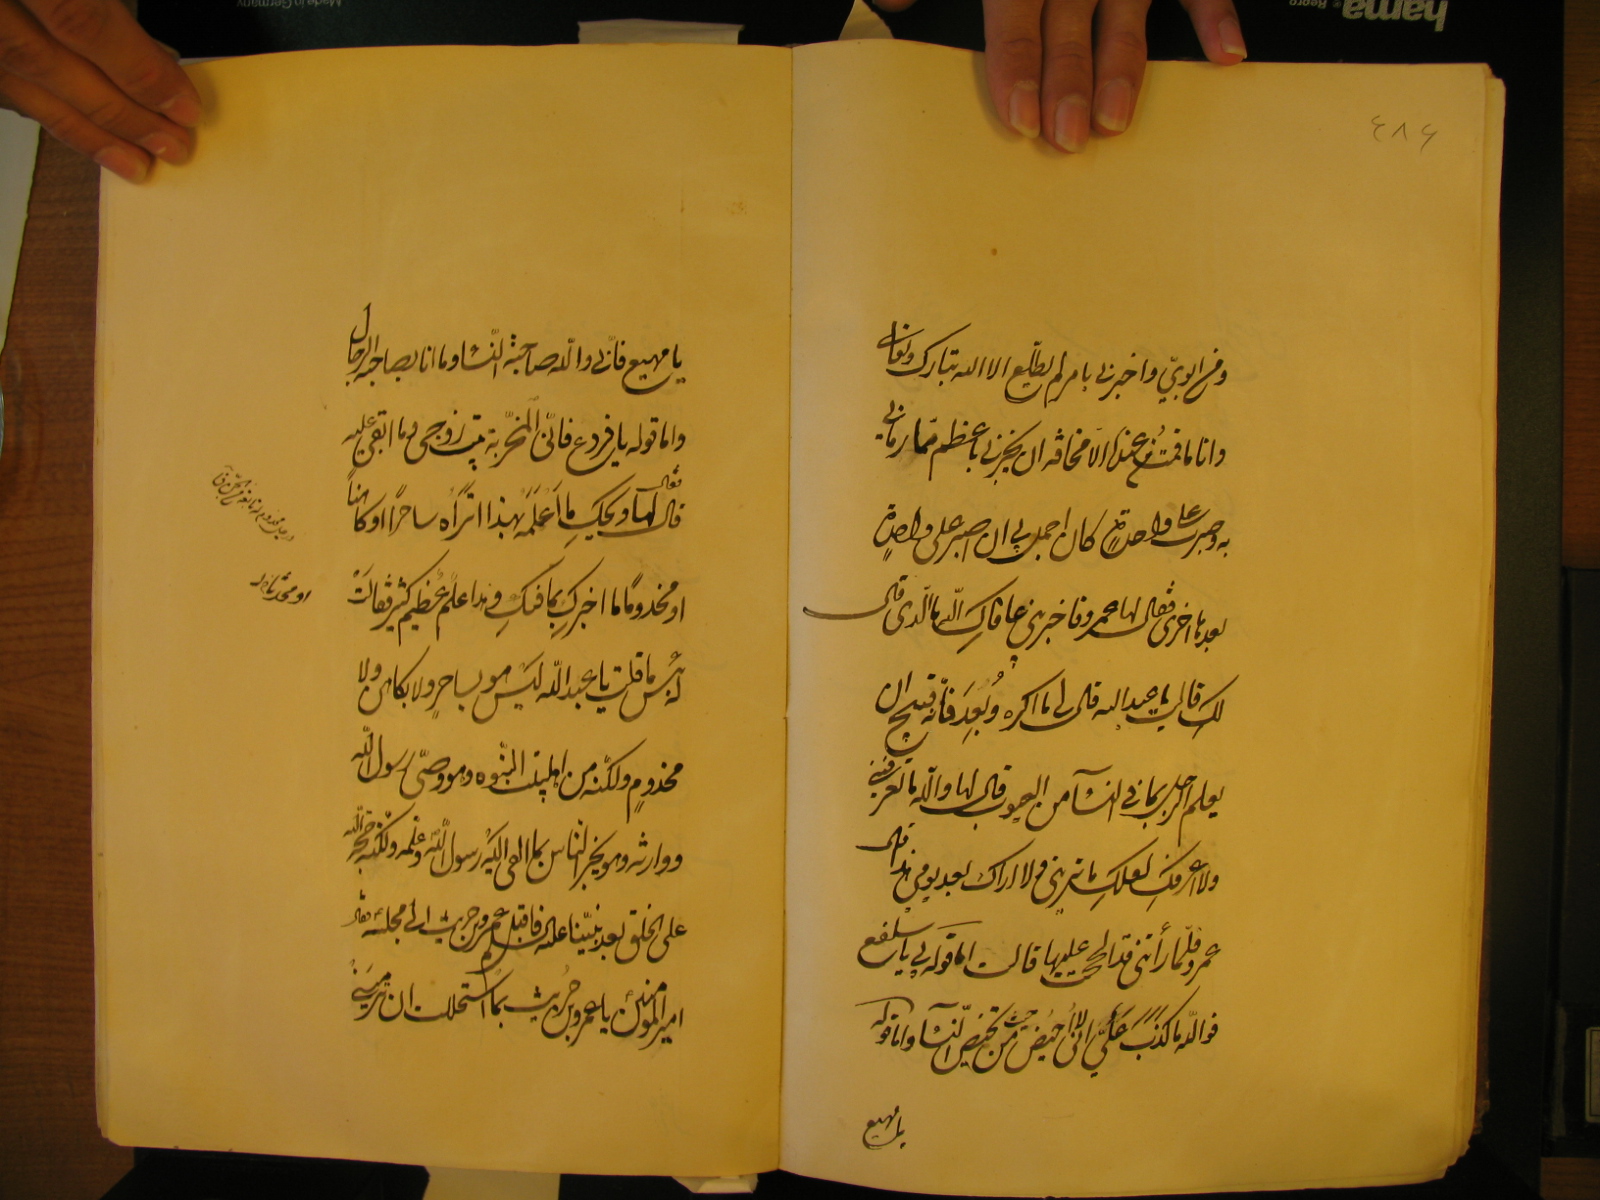 ٤٨٤
ومن ابوي واخبرني بامر لم يطلع الا الله تبارك وتعالى
وانا ما قمت من عنده الا مخافة ان يخبرني باعظم مما رماني
به وصبرت على واحدة كان اجمل بي ان اصبر على واحدة
بعدها اخرى فقال لها عمرو فاخبريني عافاك الله ما الذى قال
لك قالت يا عبد الله قال لي ما اكره وبعد فانه قبيح ان
يعلم الرجل بما في النسآء من العيوب قال لها والله ما تعرفيني
ولا اعرفك لعلك ما تريني ولا اراك بعد يومي هذا قال
عمرو فلما رأتني قد الححت عليها قالت اما قوله لي يا سلفع
فوالله ما كذب علي اني لا أحيض من حيث تحيض النسآء واما قوله
يا مهيع
يا مهيع فاني والله صاحبة النسا وما انا بصاحبة الرجال
واما قوله يا قردع فاني المخربة بيت زوجي وما ابقي عليه
فقال
قال لها ويحك ما أعلمه بهذا اتراه ساحرا او كاهنا
او مخدوما ما اخبرك بما فيك وهذا علم عظيم كثير فقالت
له بئس ما قلت يا عبد الله ليس هو بساحر ولا بكاهن ولا
مخدوم ولكنه من اهلبيت النبوه وهو وصي رسول الله
ووارثه وهو يخبر الناس بما القى اليه رسول الله وعلمه ولكنه حجة الله
على الخلق بعد نبينا عليه فاقبل عمرو بن حريث الى مجلسه فقال
امير المؤمنين يا عمرو بن حريث بما استحللت ان ترميني